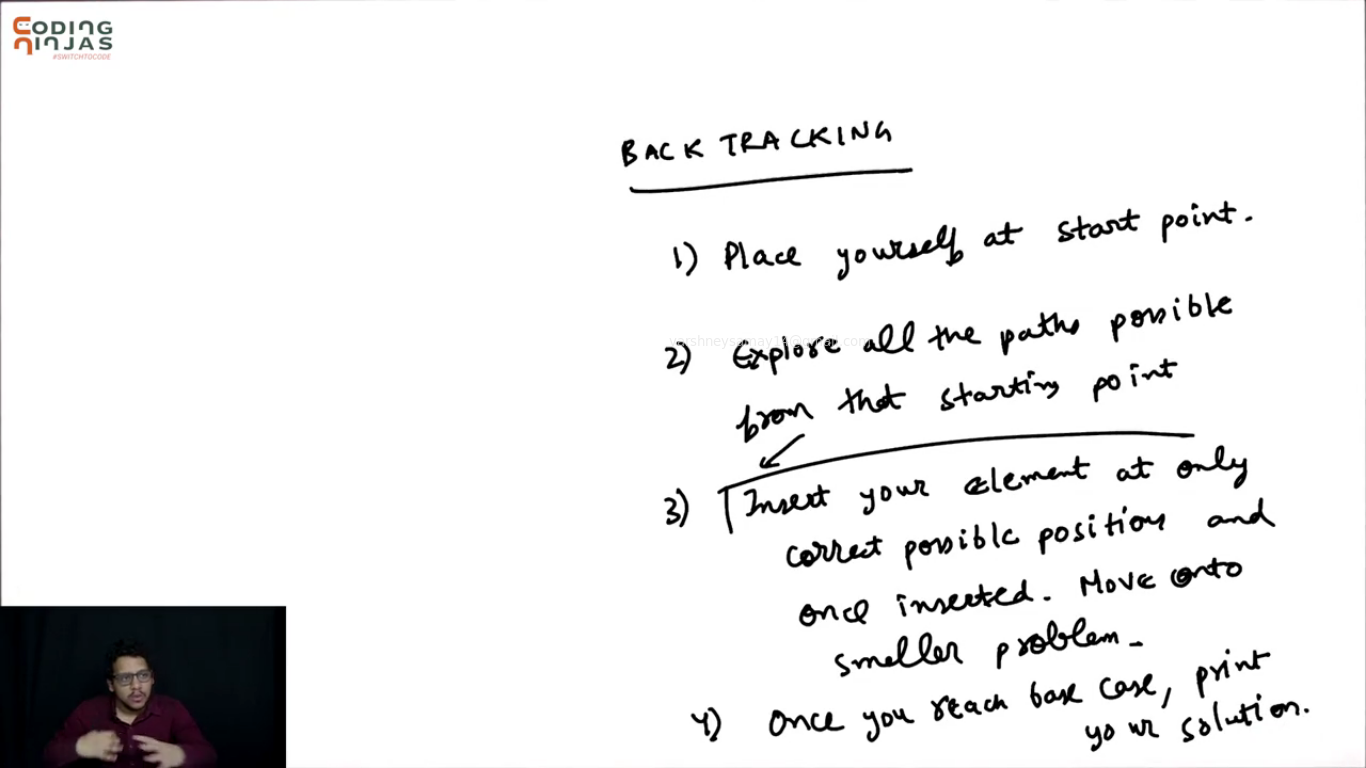 CODING
NINJAS
#SWITCHTOCODE
BACK TRACKING
1) Place yourself at start point.
2) Explore all the paths possible
from that starting point
3) Insert your element at only
correct possible position and
once inserted. Move onto
smaller problem-
4) Once you reach base case, print
your solution.